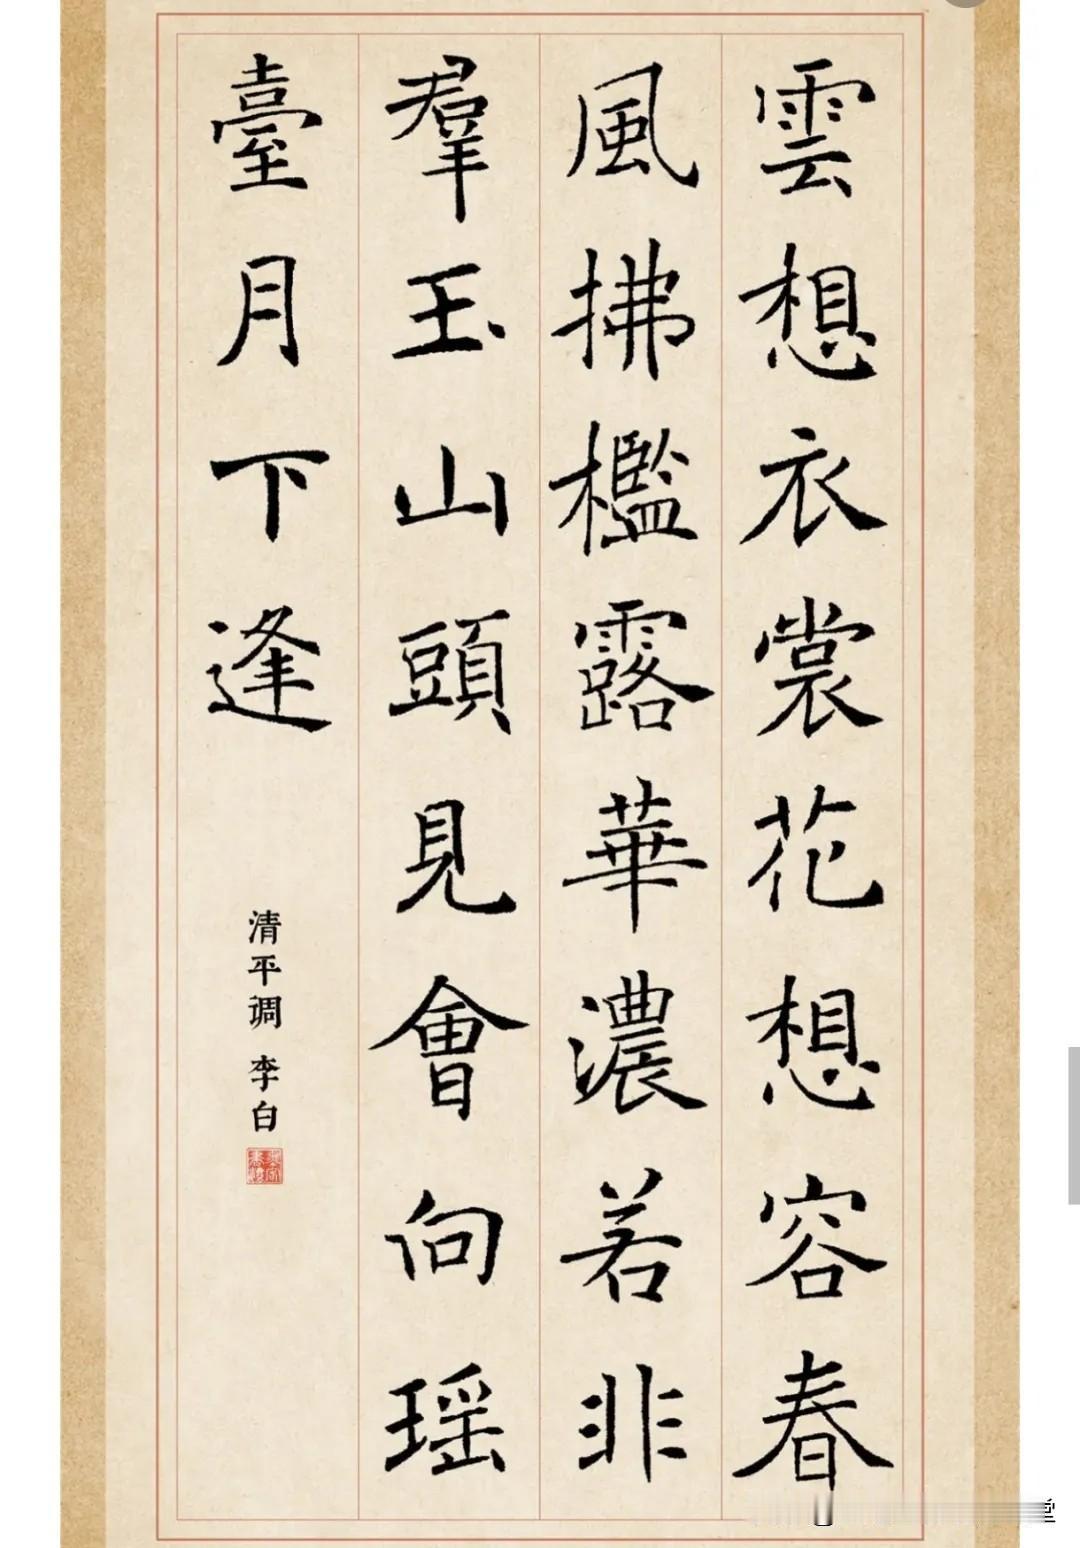 雲想衣裳花想容春
風拂檻露華濃若非
羣玉山頭見會向瑶
臺月下逢
清平调 李白